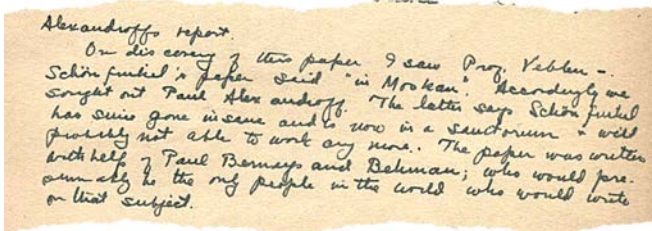 Alexandroff's report.
On discovery of this paper I saw Prof. Veblen -.
Schönfinkel's paper said "in Moskau". Accordingly we
sought out Paul Alexandroff. The latter says Schönfinkel
has since gone insane and is now in a sanatorium & will
probably not able to work any more. The paper was written
with help of Paul Bernays and Behman; who would pre-
sumably be the only people in the world who would write
on that subject.